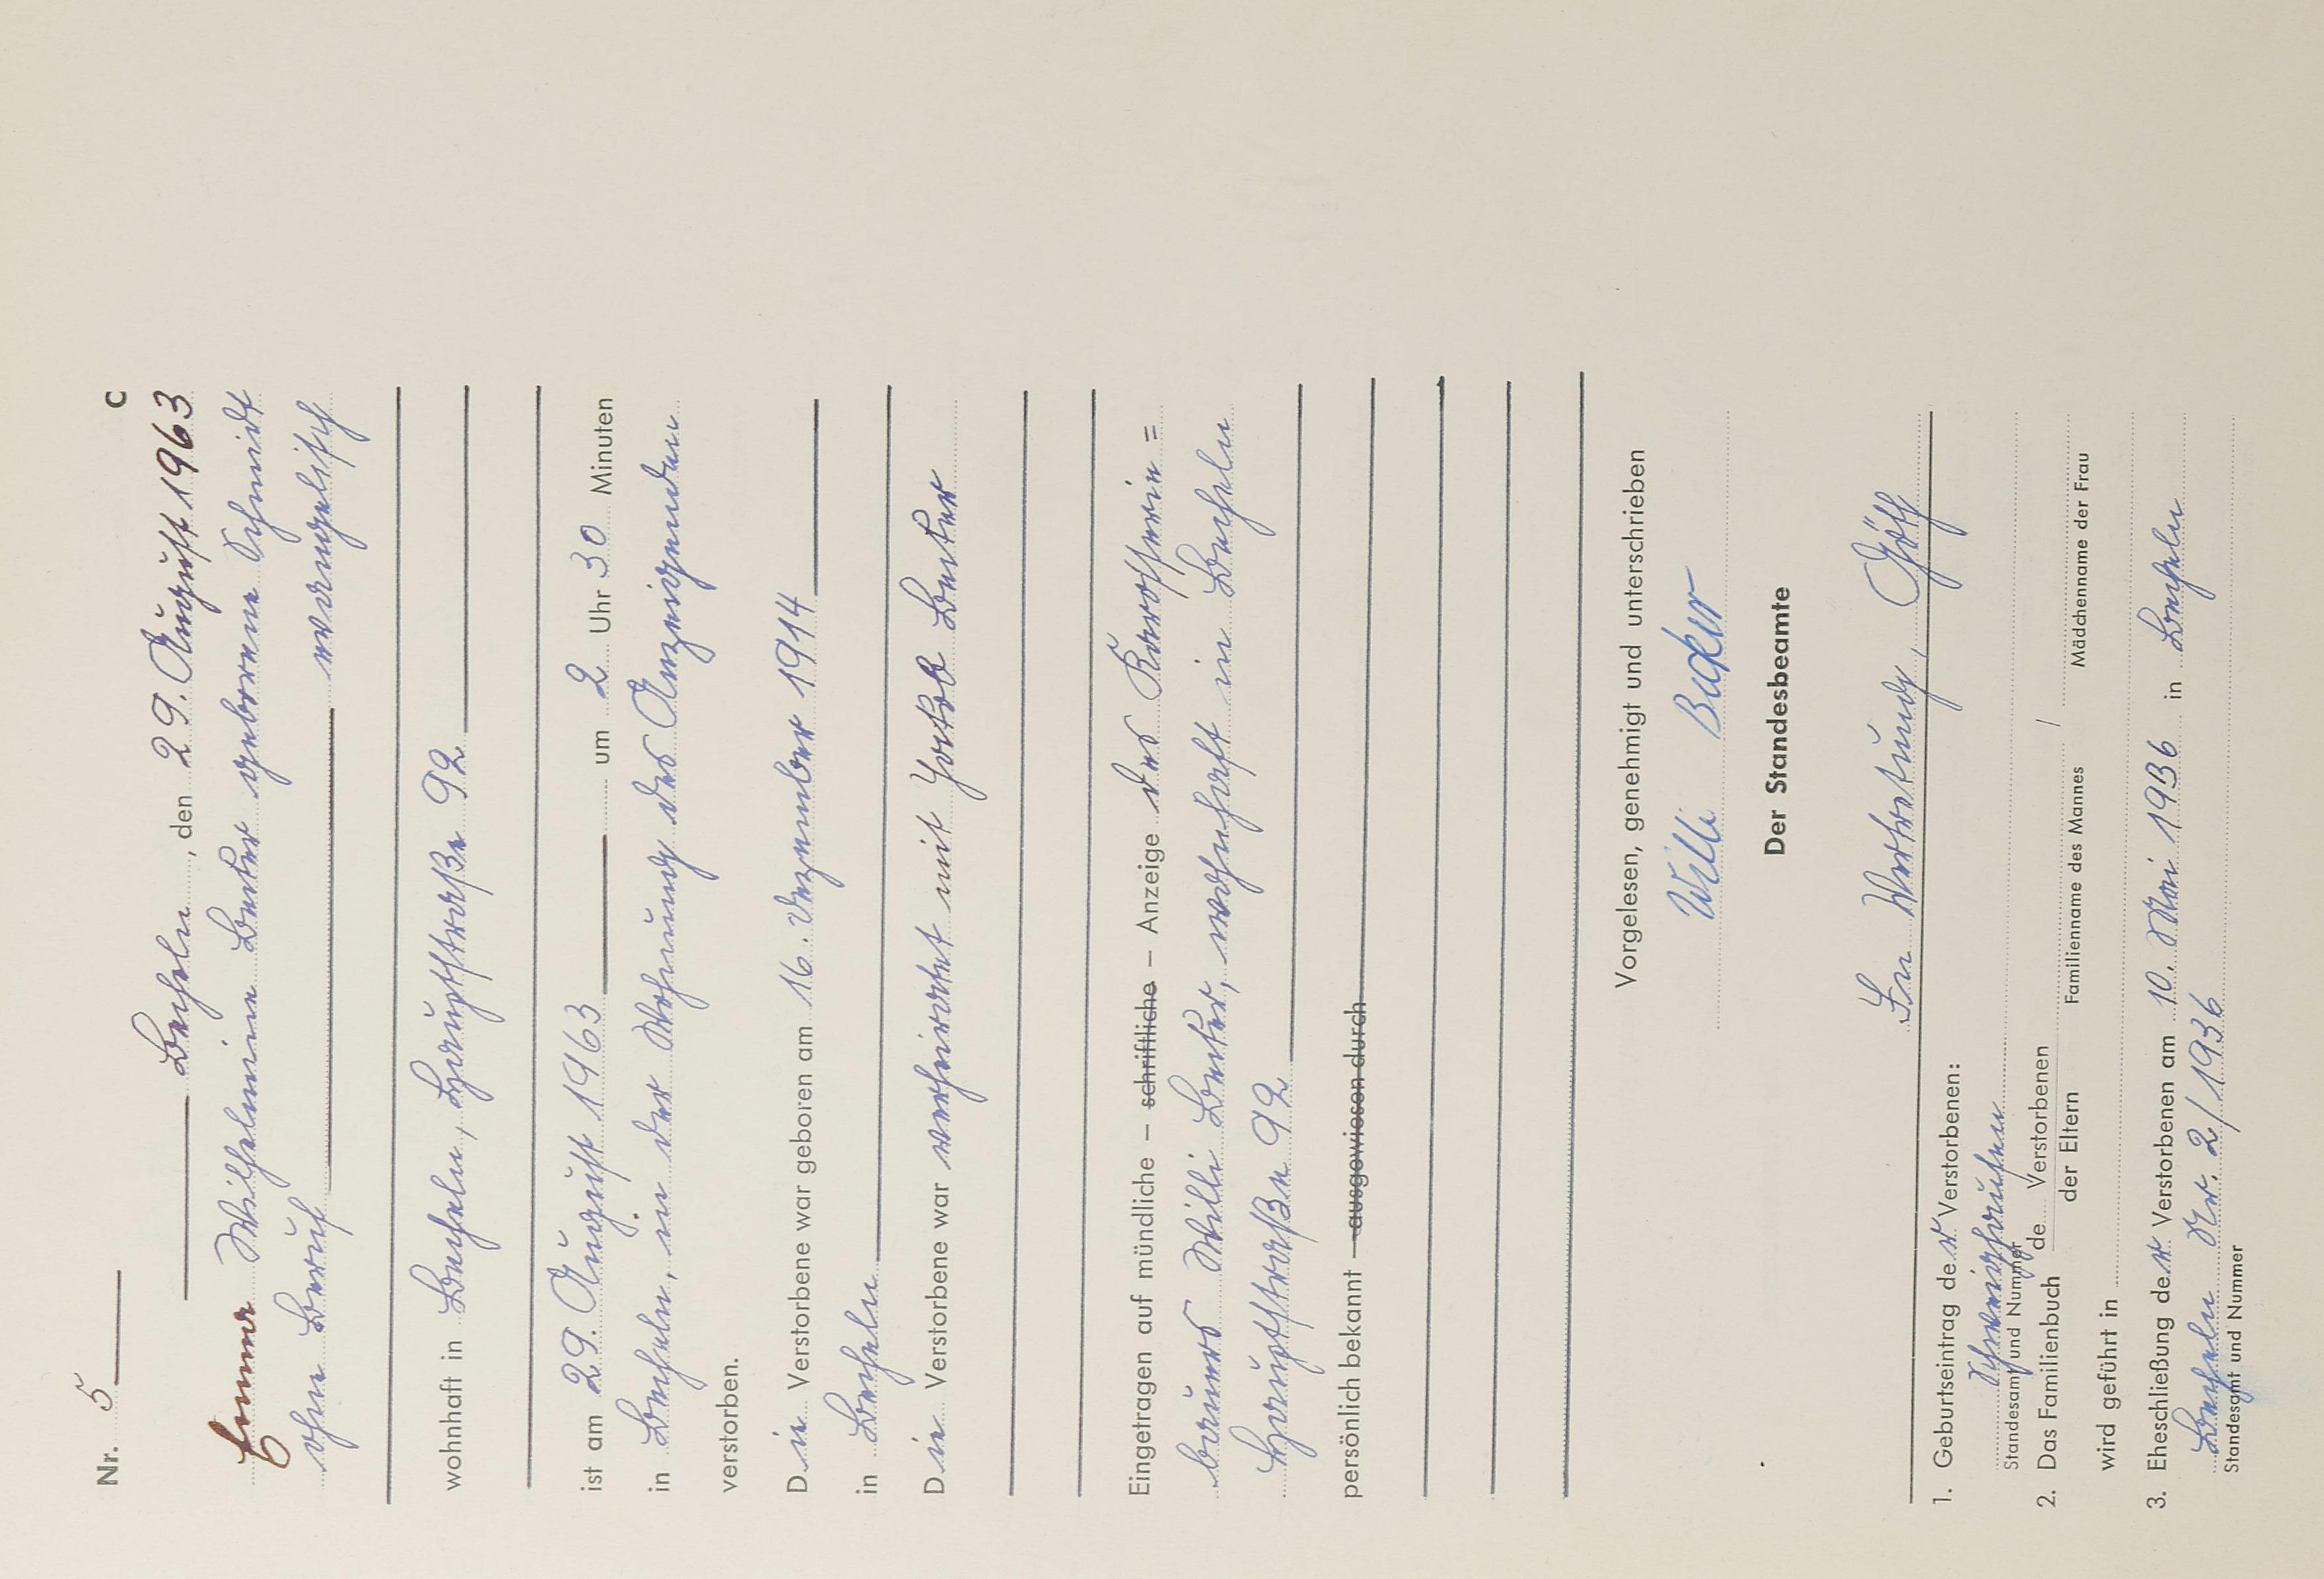 Nr. 5
C
Becheln, den 29. August 1963
Emma Wilhelmine Becker geborene Schmidt
ohne Beruf evangelisch
wohnhaft in Becheln, Hauptstraße 92
ist am 29. August 1963 um 2 Uhr 30 Minuten
in Becheln, in der Wohnung des Anzeigenden
verstorben.
Die Verstorbene war geboren am 16. Dezember 1914
in Becheln
Die Verstorbene war verheiratet mit Becker
Eingetragen auf mündliche – schriftliche – Anzeige des Karosserie=
bauers Willi Becker, wohnhaft in Becheln
Hauptstraße 92
persönlich bekannt – ausgewiesen durch
Vorgelesen, genehmigt und unterschrieben
Willi Becker
Der Standesbeamte
In Vertretung,
1. Geburtseintrag der Verstorbenen:
Schweighausen
Standesamt und Nummer
2. Das Familienbuch de Verstorbenen
der Eltern
/
Familienname des Mannes
Mädchenname der Frau
wird geführt in
3. Eheschließung der Verstorbenen am 10. Mai 1936 in Becheln
Becheln Nr. 2/1936
Standesamt und Nummer